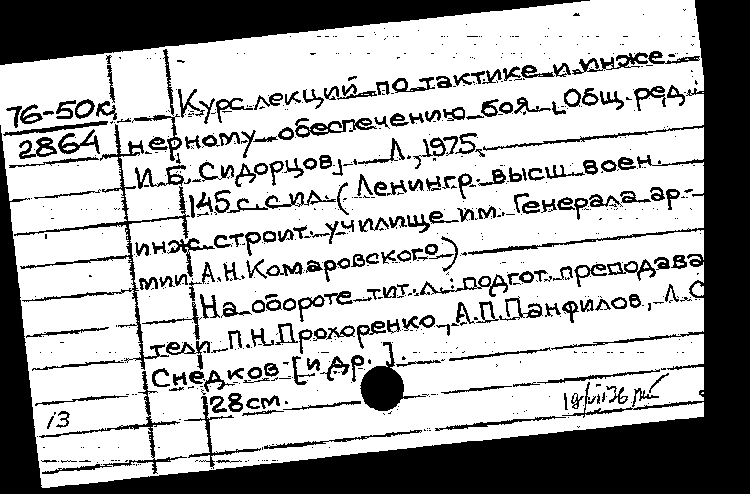 76-50к
2864
Курс лекций по тактике и инже-
нерному обеспечению боя. [Общ. ред.:
И.Б. Сидорцов]. Л., 1975.
145 с. с ил. (Ленингр. высш. воен.
инж. строит. училище им. Генерала ар-
мии А.Н. Комаровского)
На обороте тит. л.: подгот. преподава
тели П.Н. Прохоренко, А.П. Панфилов, Л.С
Снедков [и др.].
28 см.
13